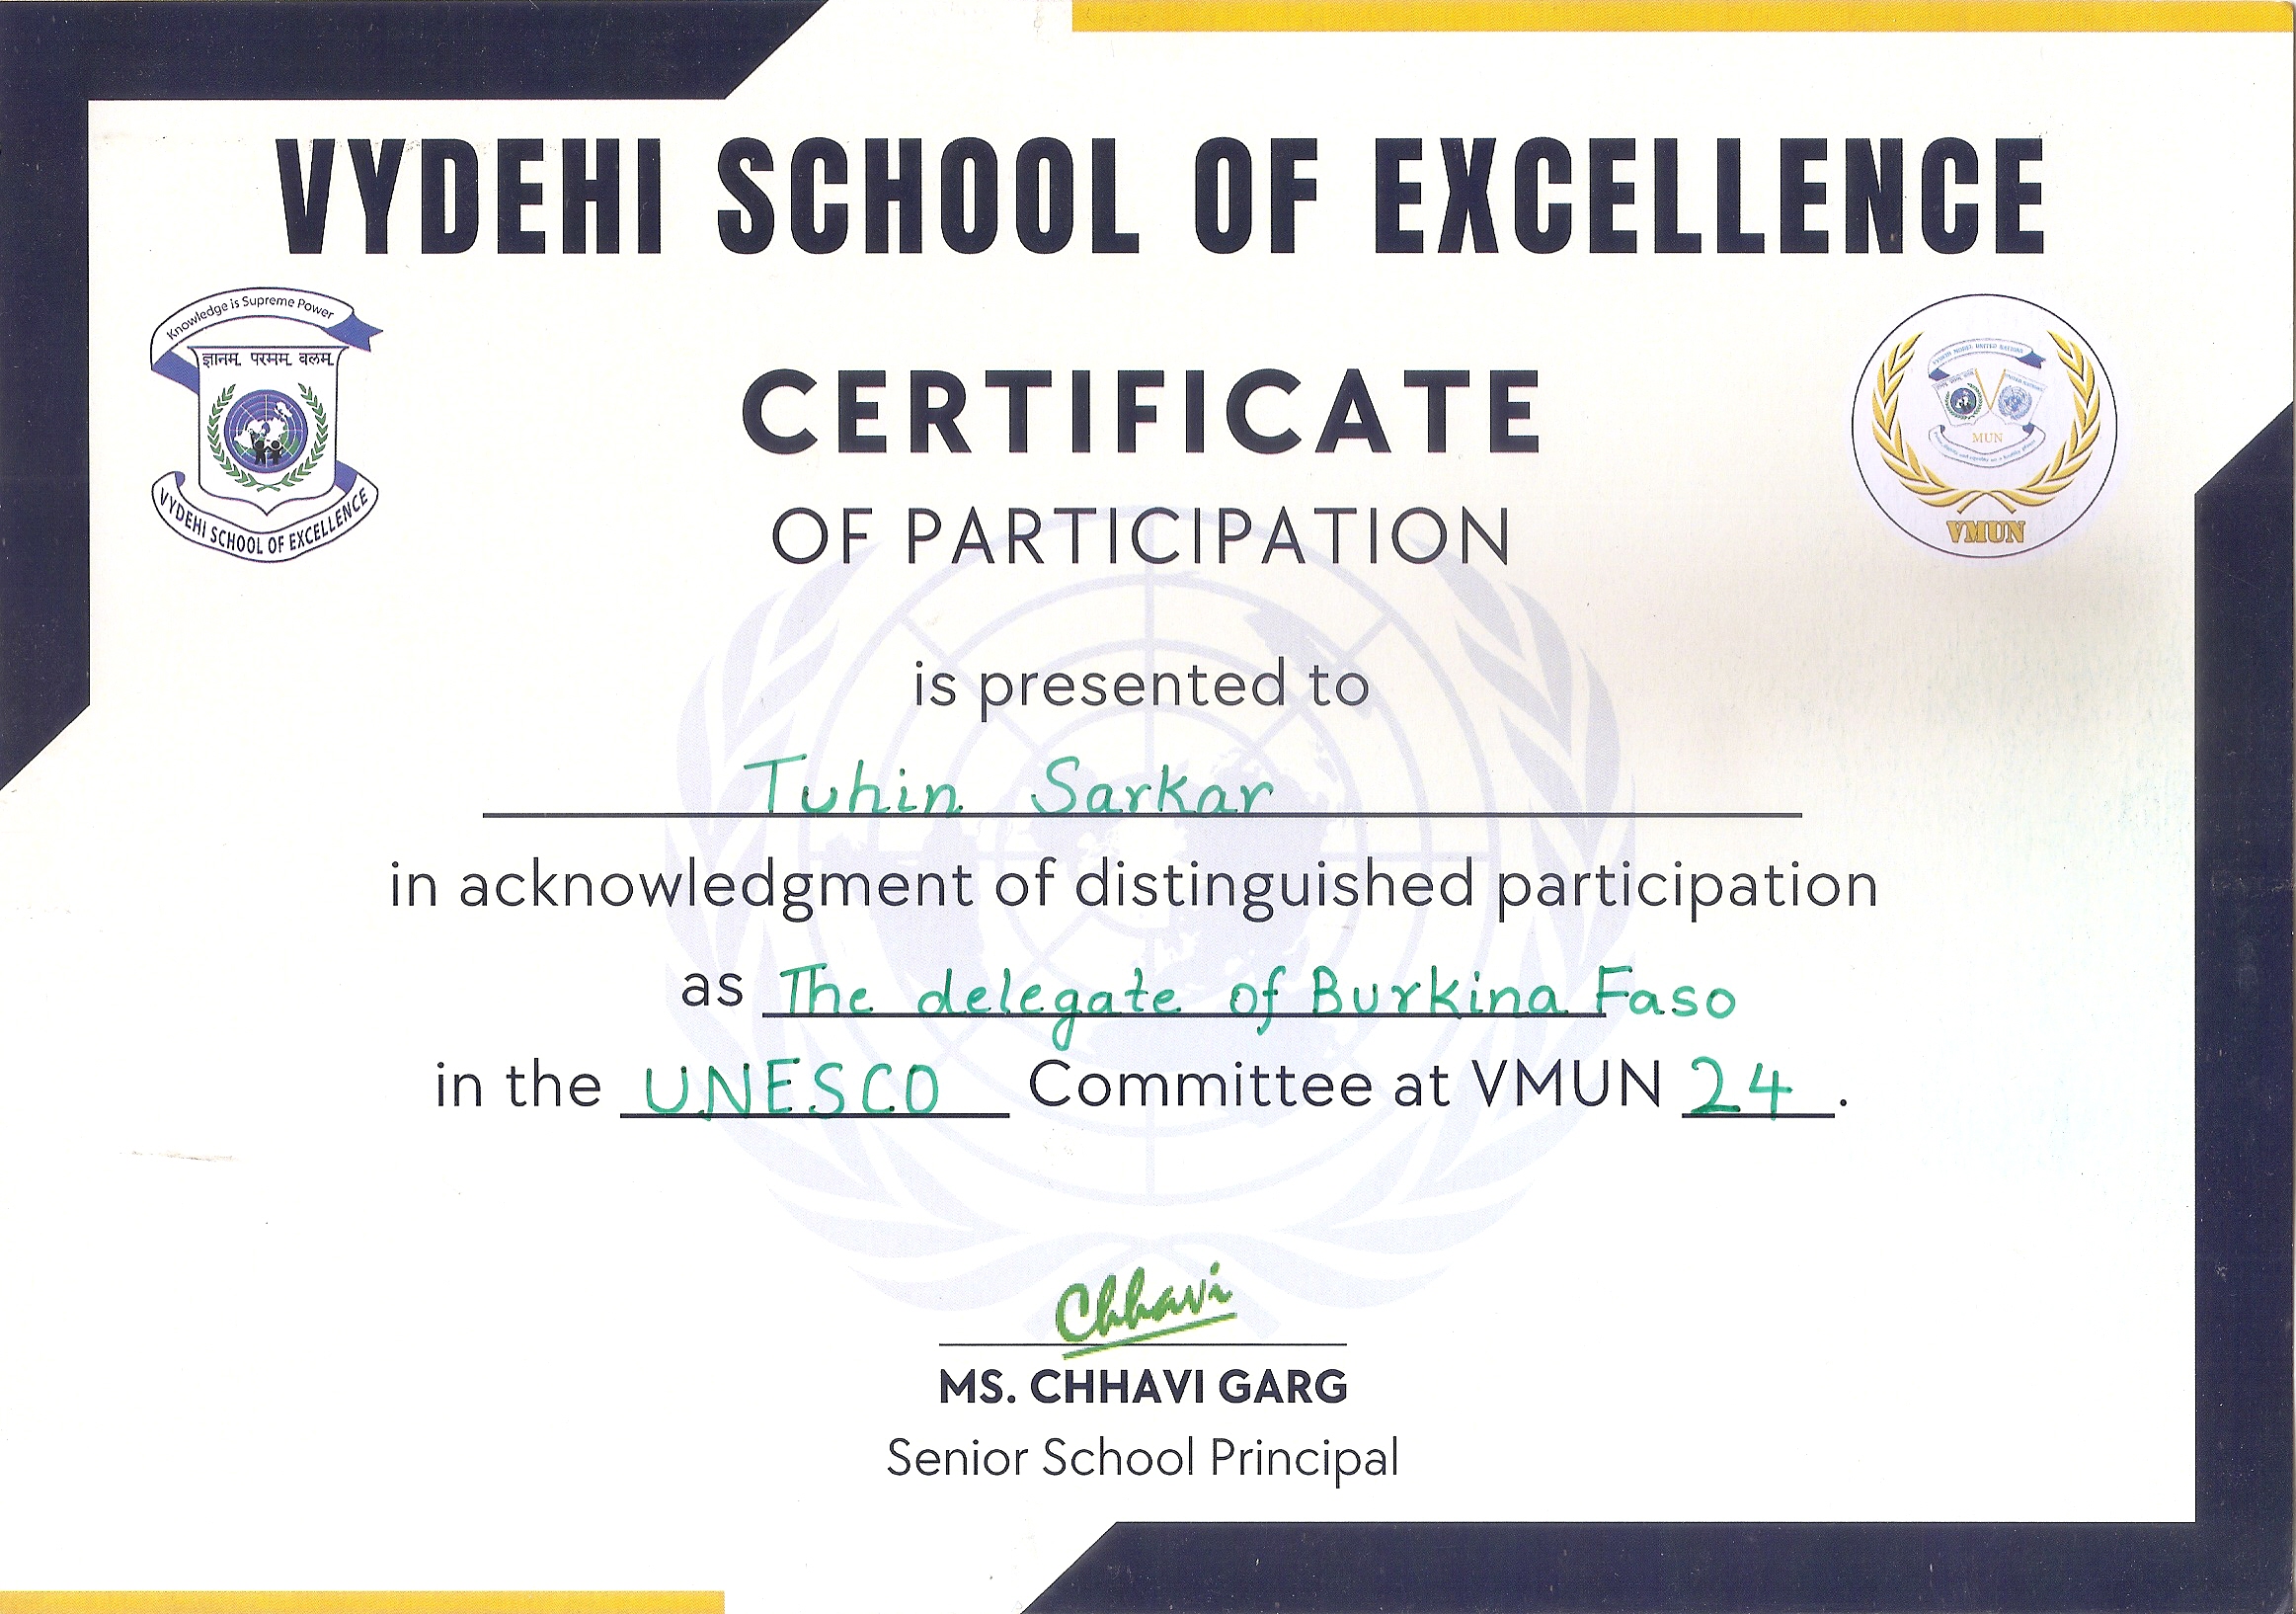 VYDEHI SCHOOL OF EXCELLENCE
Knowledge is Supreme Power
ज्ञानम् परमम् वलम्
VYDEHI SCHOOL OF EXCELLENCE
VYDEHI MODEL UNITED NATIONS
MUN
VMUN
CERTIFICATE
OF PARTICIPATION
is presented to
Tuhin Sarkar
in acknowledgment of distinguished participation
as The delegate of Burkina Faso
in the UNESCO Committee at VMUN 24.
Chhavi
MS. CHHAVI GARG
Senior School Principal